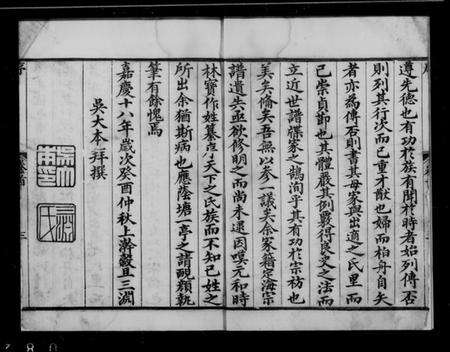 遵先德也有功於族有聞於時者始列傳否
則列其行次而已重才猷也婦而柏舟自矢
者亦為傳否則書其母家與出適之氏里而
已崇貞節也其體嚴其例嚴得良史之法而
立近世譜牒家之鵠洵乎其有功於宗祊也
美矣備矣吾無以參一議矣余家籍定海宗
譜遺失亟欲修明之而尚未遑因嘆元和時
林寶作姓纂志天下之氏族而不知己姓之
所出余猶斯病也應蔭塘一亭之請靦顏執
筆有餘愧焉
嘉慶十八年歲次癸酉仲秋上澣穀旦三浙
吳大本拜撰